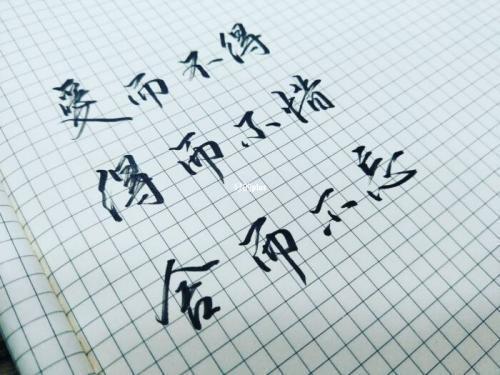 爱而不得
得而不惜
舍而不忘
5109plus